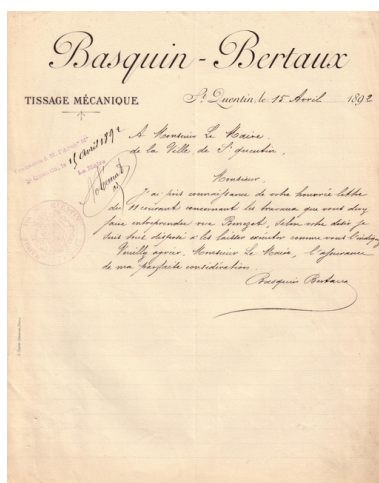 Basquin - Bertaux
TISSAGE MÉCANIQUE
St Quentin, le 15 Avril 1892
A Monsieur Le Maire
de la Ville de St quentin.
St Quentin, le 15 avril 1892
Le Maire
Monsieur
J'ai pris connaissance de votre honorée lettre
du 11 courant concernant les travaux que vous
faire entreprendre rue Selon votre désir je
suis tout disposé à les laisser exécuter comme vous l'indiquez
Veuillez agréer, Monsieur Le Maire, l'assurance
de ma parfaite considération.
Basquin Bertaux